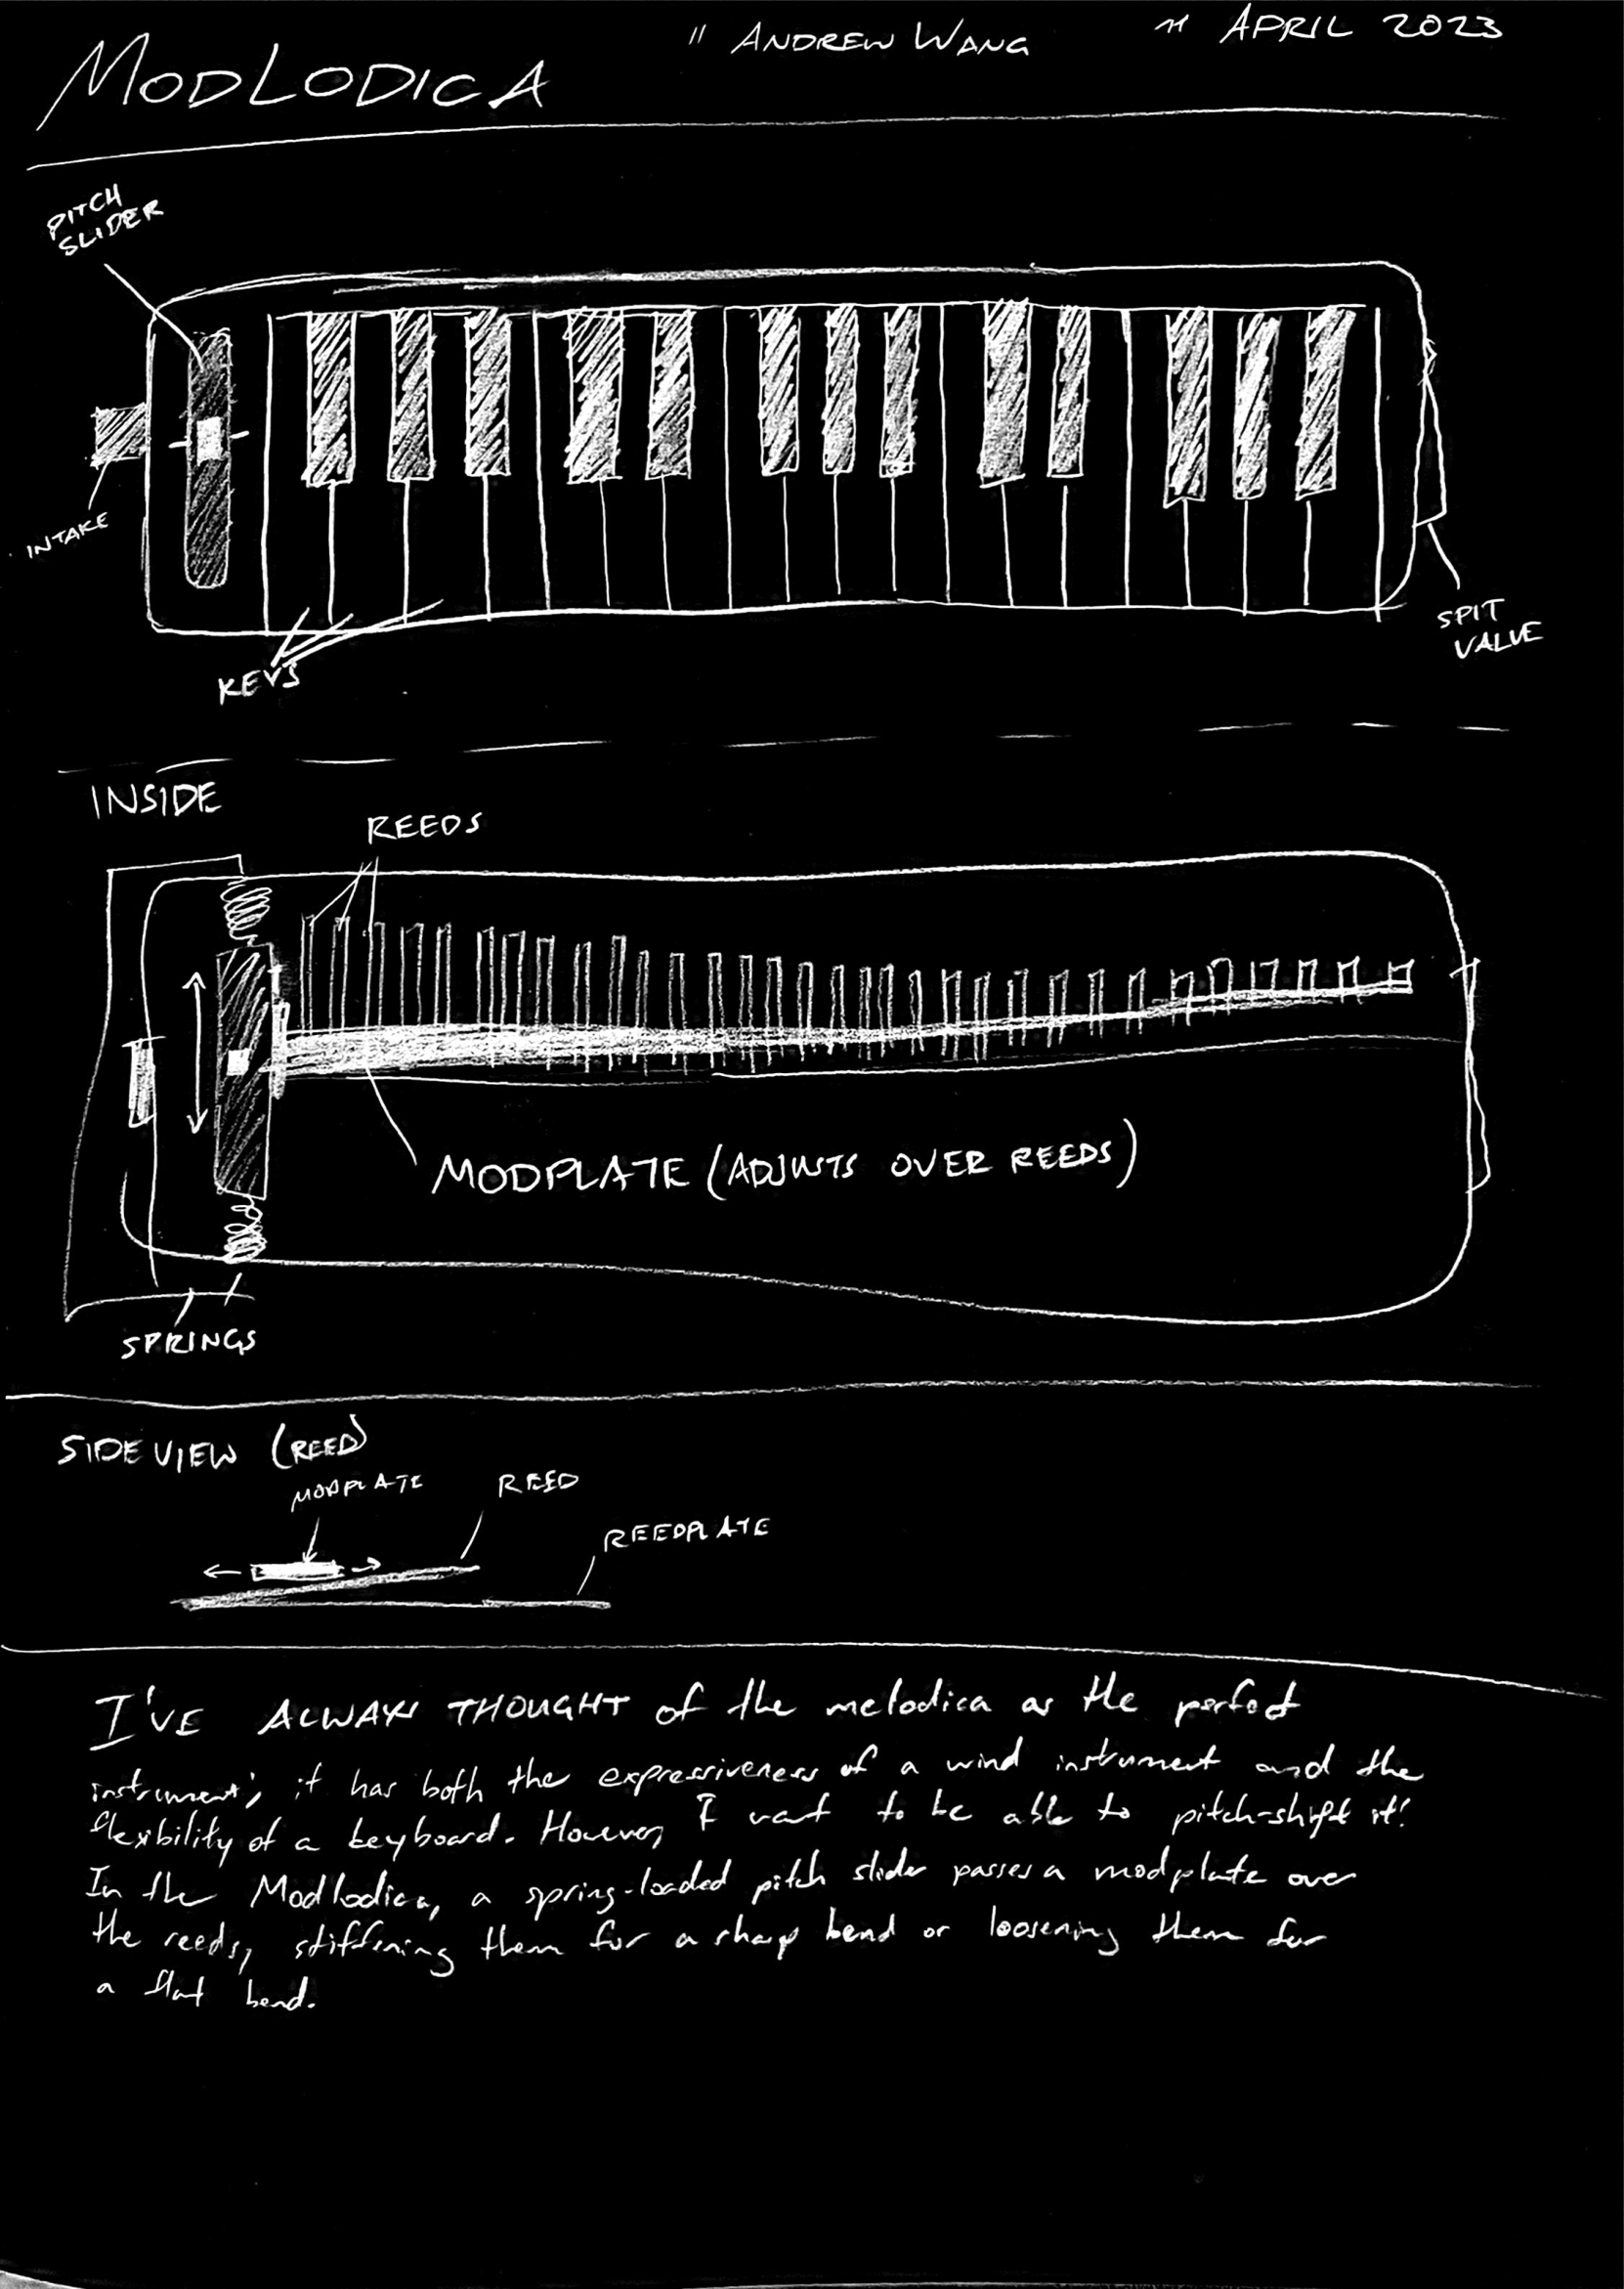 MODLODICA
" ANDREW WANG " APRIL 2023
PITCH
SLIDER
INTAKE
KEYS
SPIT
VALVE
INSIDE
REEDS
MODPLATE (ADJUSTS OVER REEDS)
SPRINGS
SIDE VIEW (REED)
MODPLATE
REED
REEDPLATE
I'VE ALWAYS THOUGHT of the melodica as the perfect
instrument; it has both the expressiveness of a wind instrument and the
flexibility of a keyboard. However, I want to be able to pitch-shift it!
In the Modlodica, a spring-loaded pitch slider passes a modplate over
the reeds, stiffening them for a sharp bend or loosening them for
a flat bend.